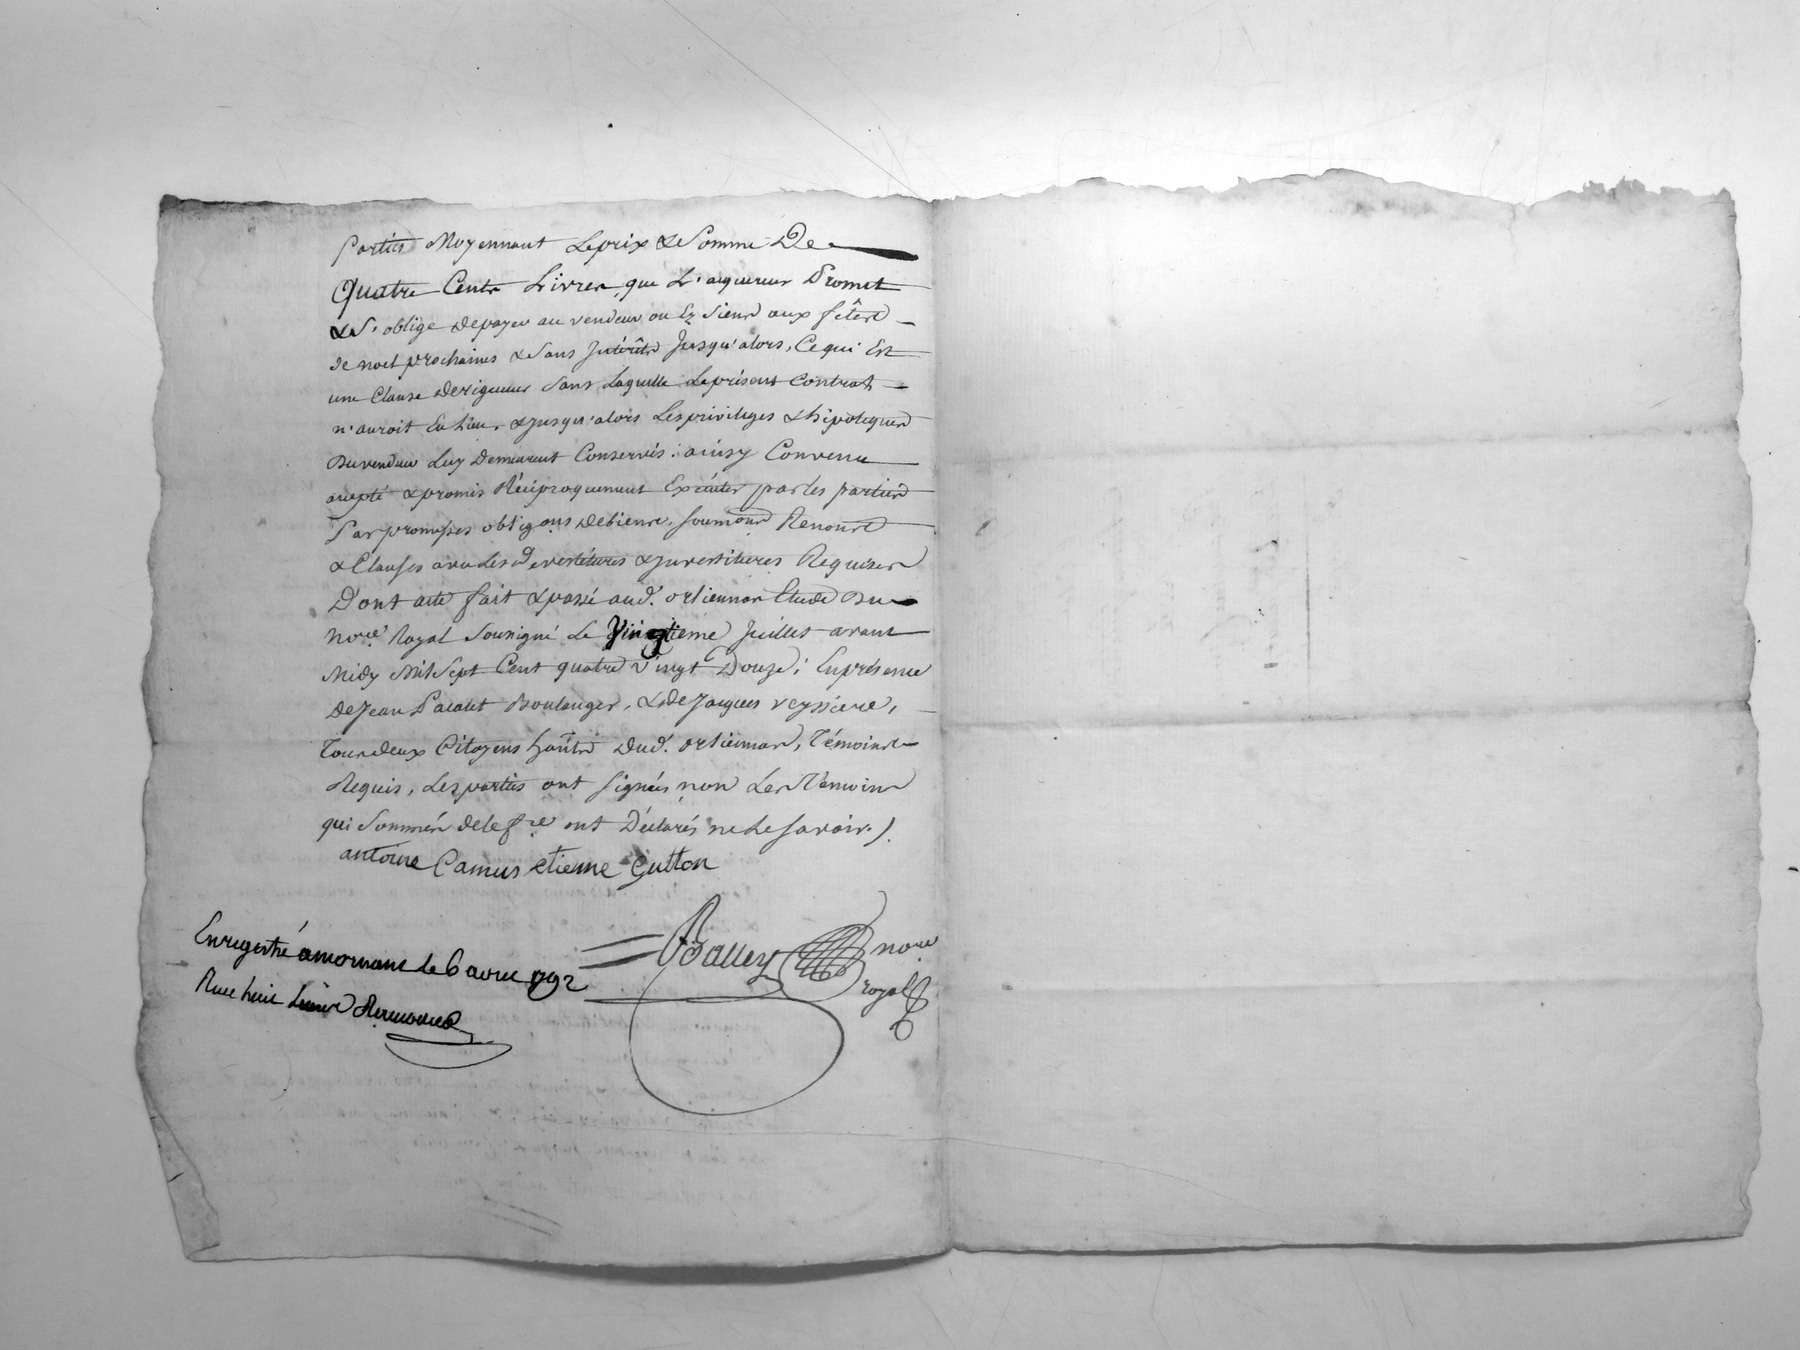 parties Moyennant Le prix & Somme De
Quatre Cents Livres que L'aquereur Promet
& S'oblige de payer au vendeur ou Ez Siens aux fêtes
de noel prochaines & Sans Intérêts Jusqu'alors, Ce qui Est
une Clause de rigueur Sans Laquelle Le présent Contrat
n'auroit Eu Lieu, & Jusqu'alors Les privileges & hipoteques
du vendeur Luy Demeurent Conservés : ainsy Convenu
accepté & promis Réciproquement Exécuter par les parties
Par promesses obligaons de biens, soumons Renons
& Clauses avec Les Devestitures & Investitures Requises
Dont acte fait & passé aud. orlienas Etude Du
no.re Royal Sousigné Le Vingtieme Juillet avant
Midy Mil Sept Cent quatre vingt Douze ; En présence
De Jean Boulanger, & de Jacques veyssiere,
Tous deux Citoyens hants Dud. orlienas, Témoins
Requis, Les parties ont signées non Les Témoins
qui Sommés de le f.re ont Déclarés ne Le savoir ./.
antoine Camus etienne Gutton
Balley no.re
royal
Enregistré a mornant le 6 aout 1792
Recu huit